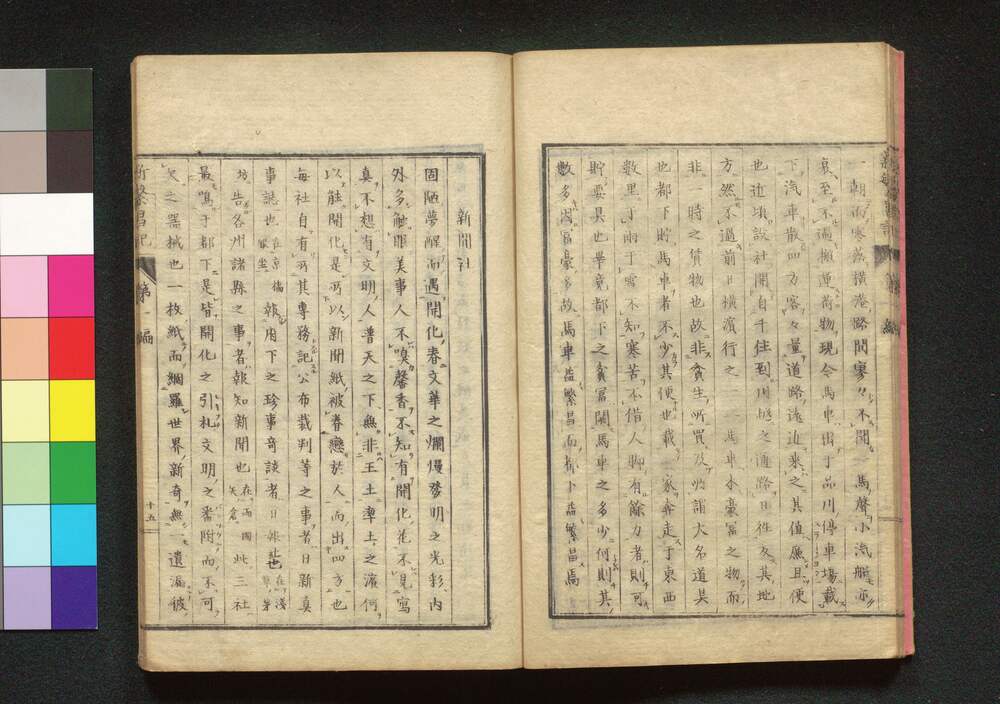 一朝而寒燕橫港畧間寥々不聞一馬聲小汽船亦
哀至不過搬運荷物現今馬車出于品川停車場載
下汽車散四方客々量道路遠近乘之其値廉且便
也近頃設社開自千住到之通路日往友其地
方然不過前日橫濱行之一馬車本豪富之物而
非一時之貨物也故非貧生所買及所謂大名道具
也都下貯馬車者不少其便也載一家奔走于東西
數里于雨于雪不知寒苦不借人脚有餘力者則可
貯要具也畢竟都下之貧富關馬車之多少何則其
數多因富豪多故馬車益繁昌而都下益繁昌焉
新聞社
固陋夢醒而遇開化春文華之爛熳發明之光彩內
外多觸眼美事人不嗅馨香不知有開化花不見寫
真不想有文明人普天之下無非王土率土之濱何
以能開化是所以新聞紙被眷戀於人而出四方也
每社自有所其專務記公布裁判等之事者日新真
事誌也在京橋銀坐報府下之珍事奇談者日報社也在淺草茅
坊告各州諸縣之事者報知新聞也在兩國矢倉此三社
最鳴于都下是皆開化之引札文明之番附而不可
欠之器械也一枚紙而綱羅世界新奇無一遺漏彼
新繁昌記
第一編
十五